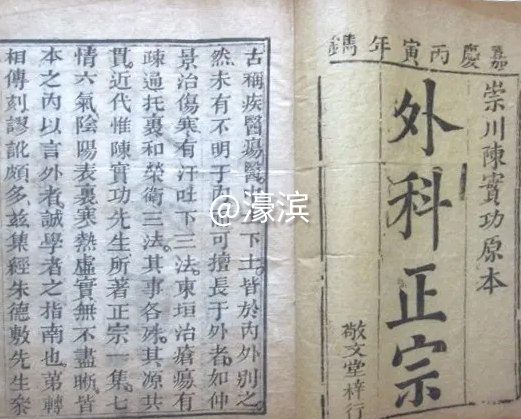 嘉慶丙寅年鐫
崇川陳實功原本
外科正宗
敬文堂梓行
古稱疾醫瘍醫下士皆於内外別之。
然未有不明于可擅長于外者。如仲
景治傷寒有汗吐下三法。東垣治瘡瘍有
疎通托裏和榮衛三法。其事各殊。其源共
貫。近代惟陳實功先生所著正宗一集。七
情六氣。陰陽表裏寒熱虛實無不盡晰。皆
本之内以言外者。誠學者之指南也。第轉
相傳刻謬訛頗多。兹集經朱德敷先生叅
@濠滨